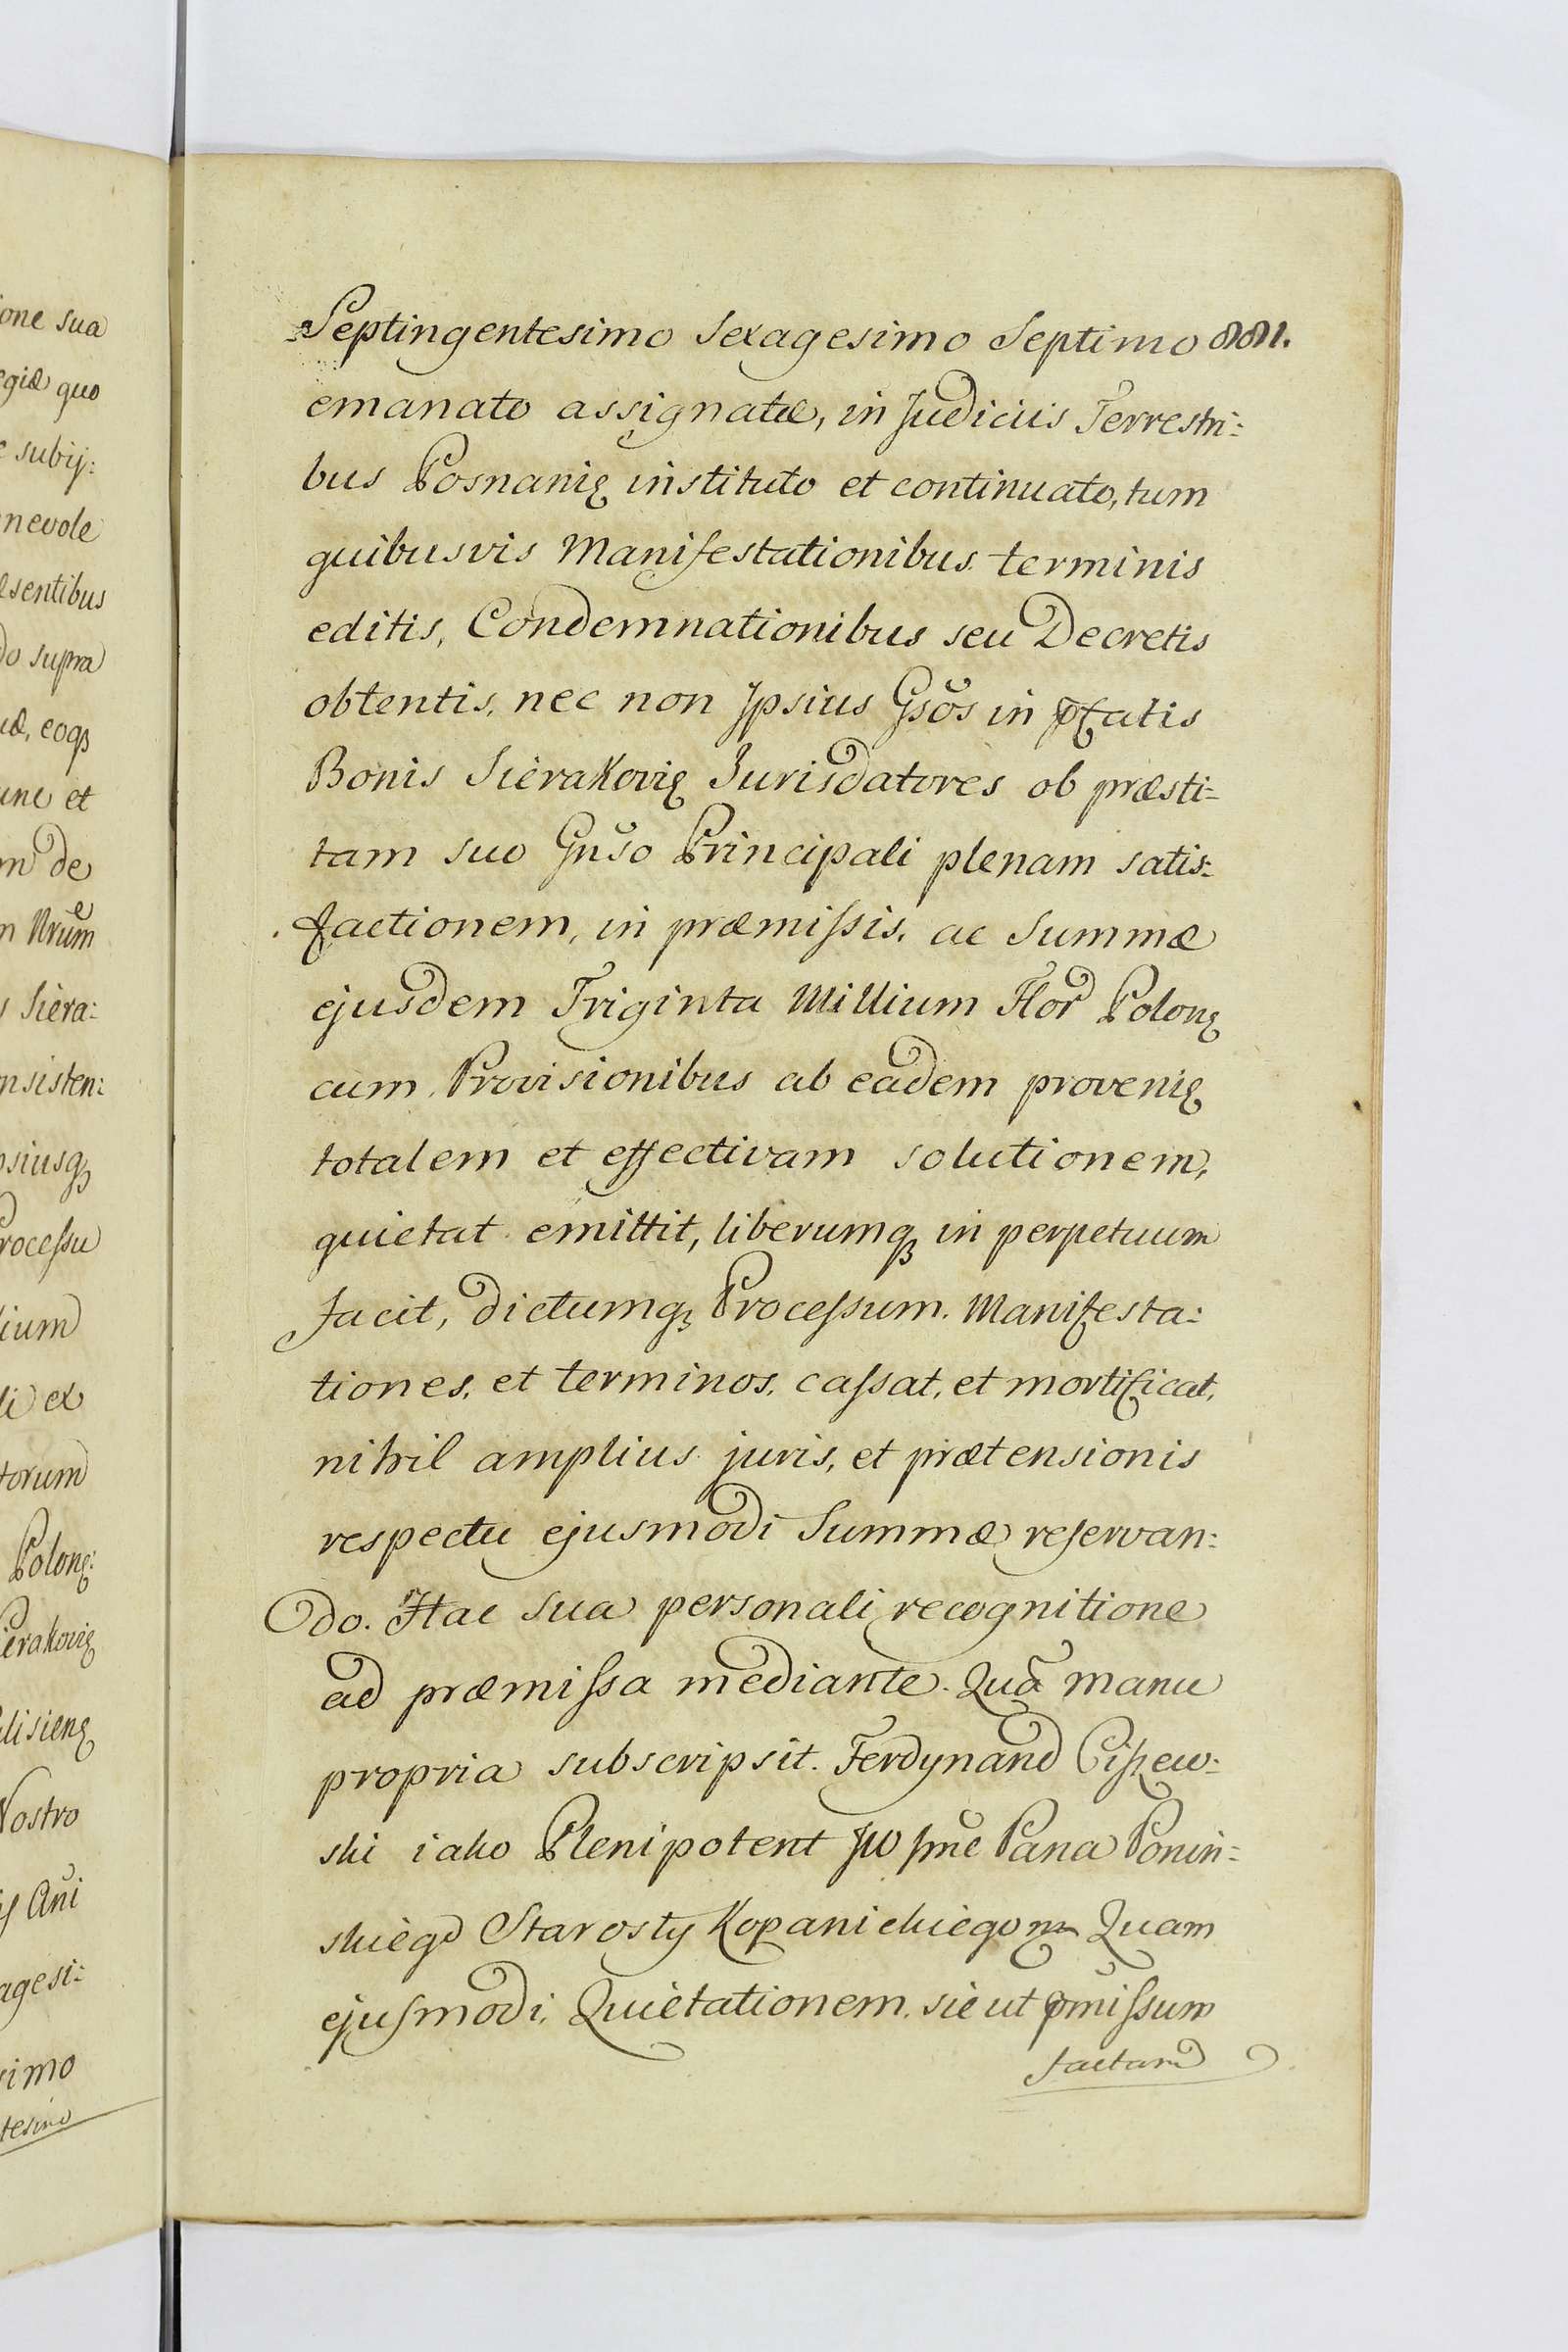 one sua
egiæ quo
e subij:
nevole
æsentibus
do supra
uæ, eoqꝫ
une et
m de
m Nrum
s Siera:
nsisten:
psiusqꝫ
Processu
lium
li ex
torum
Polonę:
ierakovię
lisienę
Nostro
Ani
agesi:
simo
tesimo
Septingentesimo Sexagesimo Septimo
emanato assignatæ, in Judiciis Terrestri:
bus Posnanię instituto et continuato, tum
quibusvis Manifestationibus terminis
editis, Condemnationibus seu Decretis
obtentis, nec non Ipsius Gsos in pfatis
Bonis Sierakovię Jurisdatores ob præsti:
tam suo Gnso Principali plenam satis:
factionem, in præmissis, ac Summæ
ejusdem Triginta Millium Flor Polonę
cum Provisionibus ab eadem provenię
totalem et effectivam solutionem,
quietat emittit, liberumqꝫ in perpetuum
facit, dictumqꝫ Processum. Manifesta:
tiones, et terminos, cassat, et mortificat,
nihil amplius juris, et prætensionis
respectu ejusmodi Summæ reservan:
do. Hac sua personali recognitione
ad præmissa mediante. Quã manu
propria subscripsit. Ferdynand Ciszew:
ski iako Plenipotent JW Jmc Pana Ponin:
skiego Starosty Kopanickiego Quam
ejusmodi Quietationem sic ut pmissum
factam